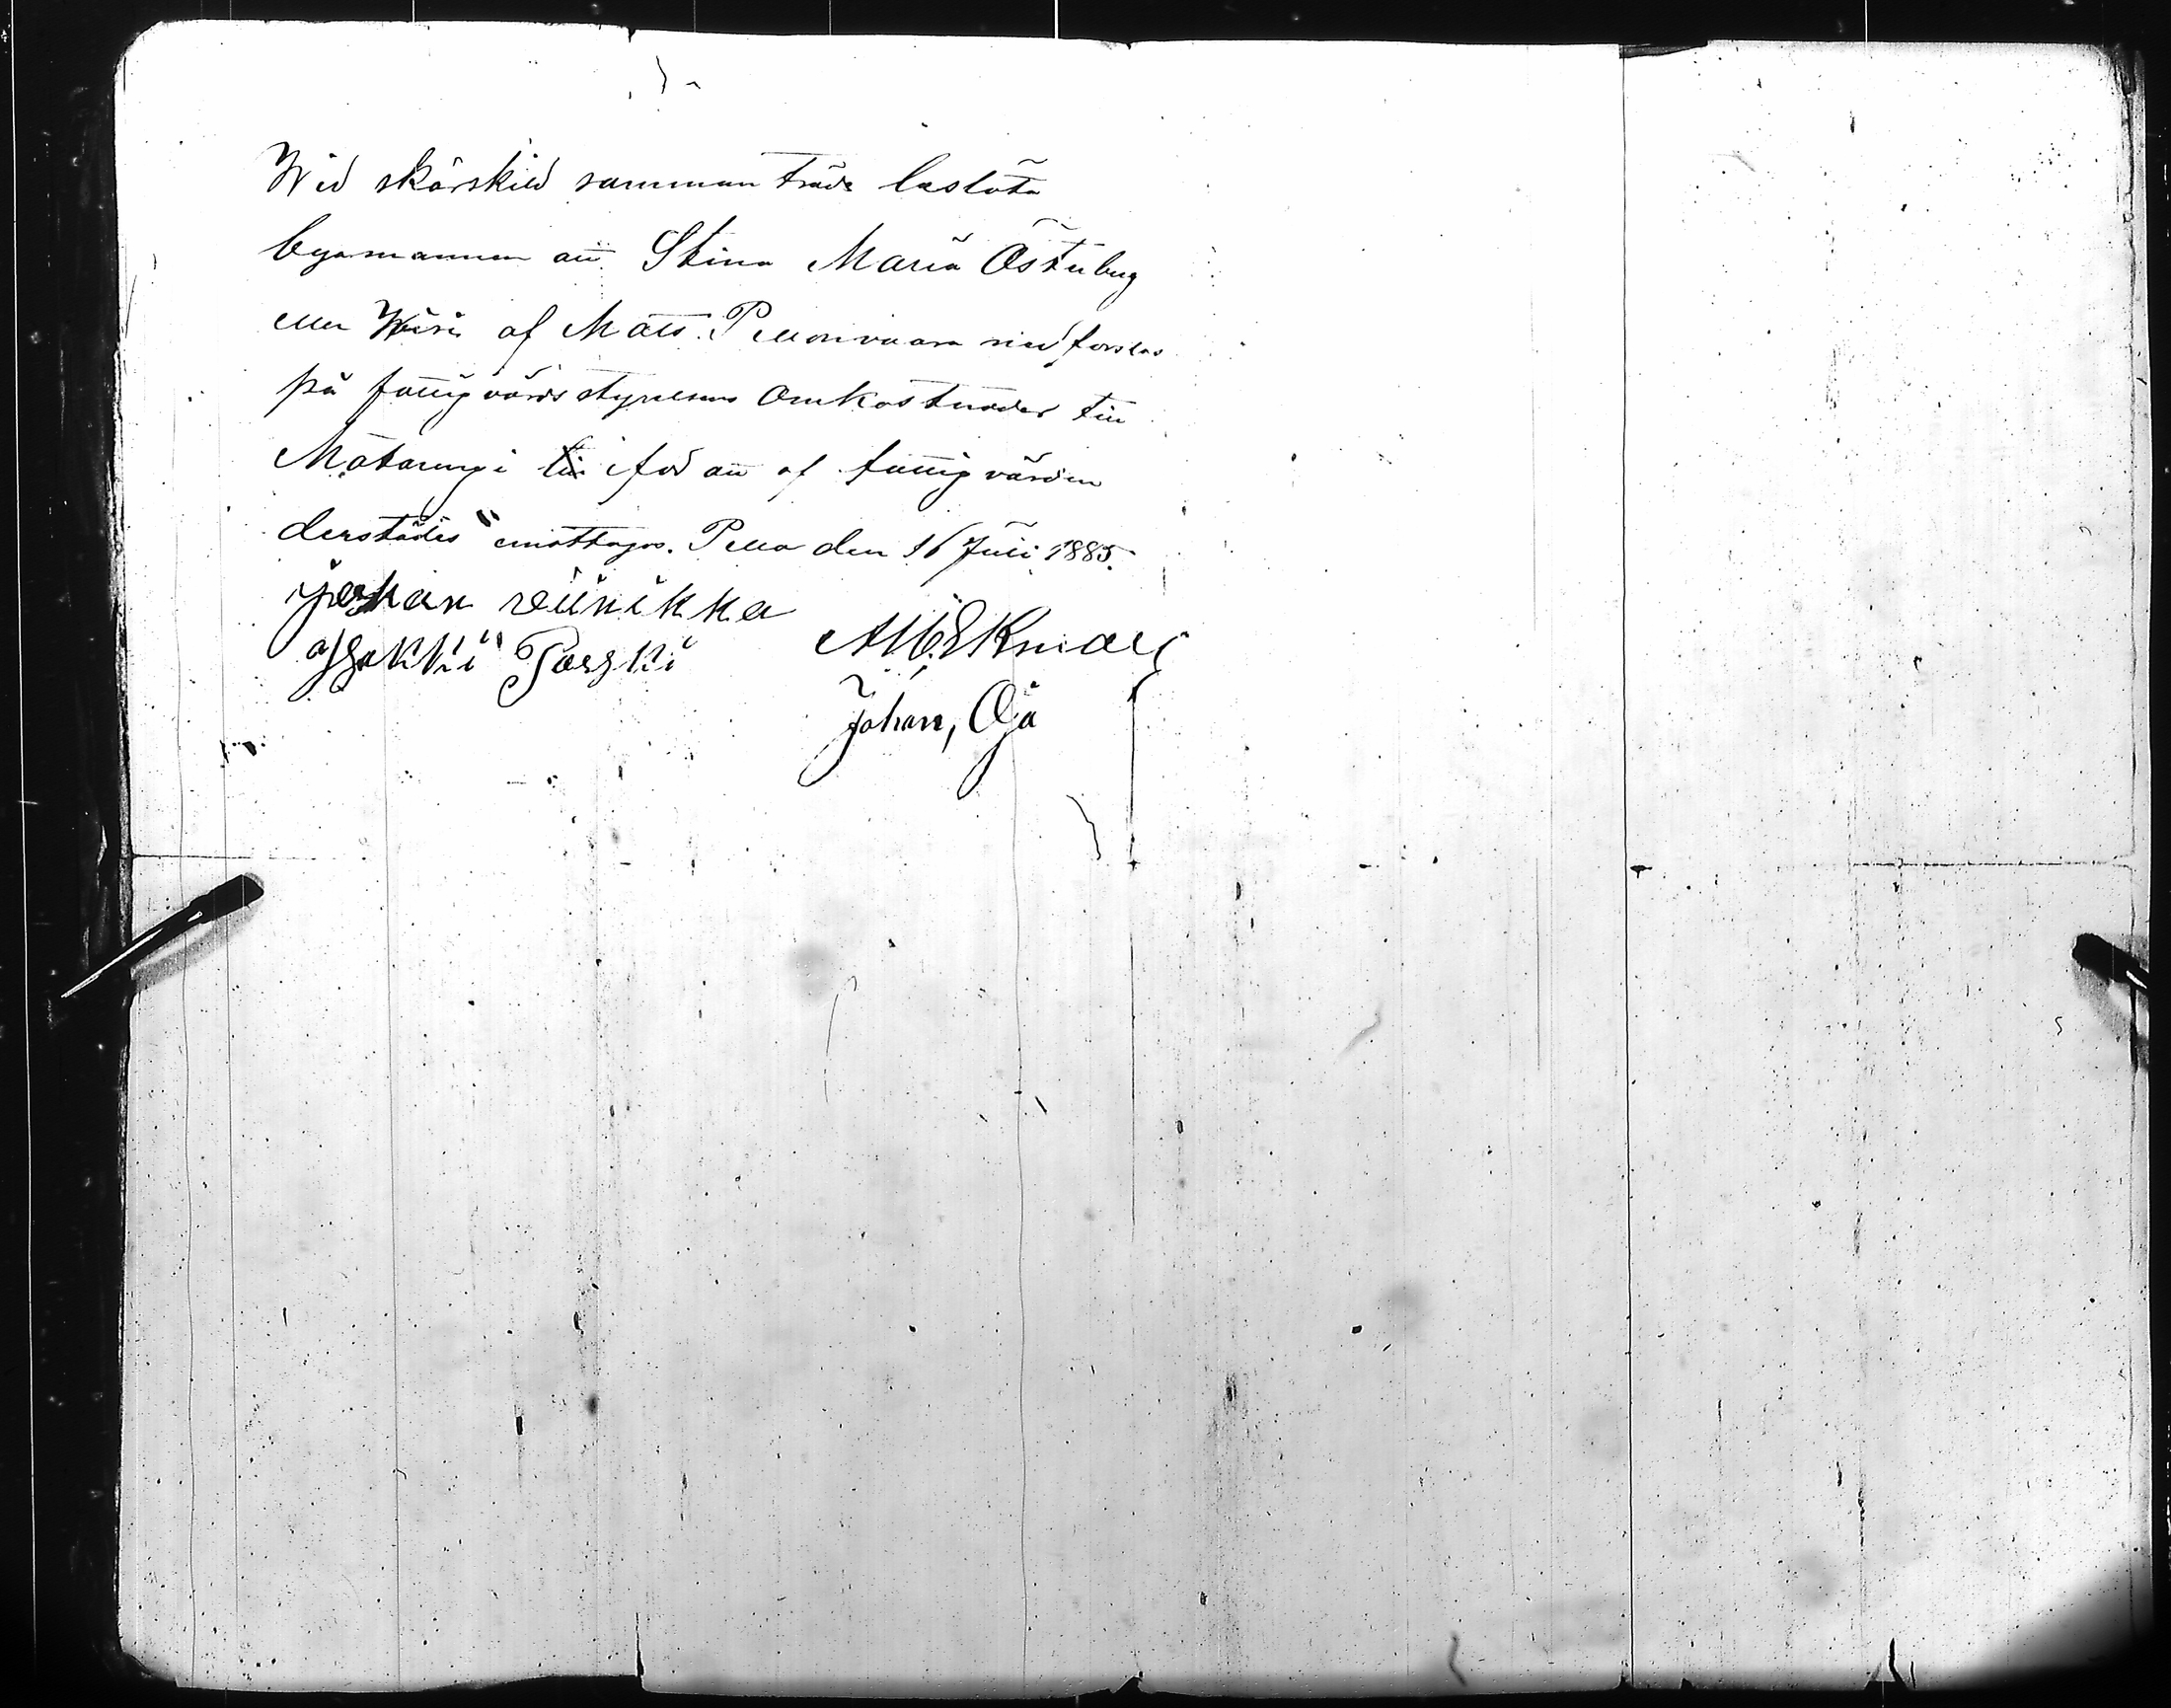 Wid skärskild sammanträde besloto
byamannen att Stina Maria Österberg
eller Wäisä af Mats Pellonvaara nedforslas
på fattigvårdsstyrelsens omkostnader till
Matarengi att af fattigvården
derstädes emottagas. Pello den 16 Juli 1885.
Johan reinikka
Jsakki Poeski
Johan, Oja